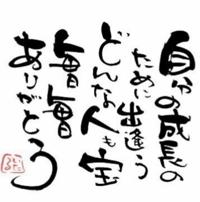 自分の成長の
ために出逢う
どんな人も宝
皆皆
ありがとう